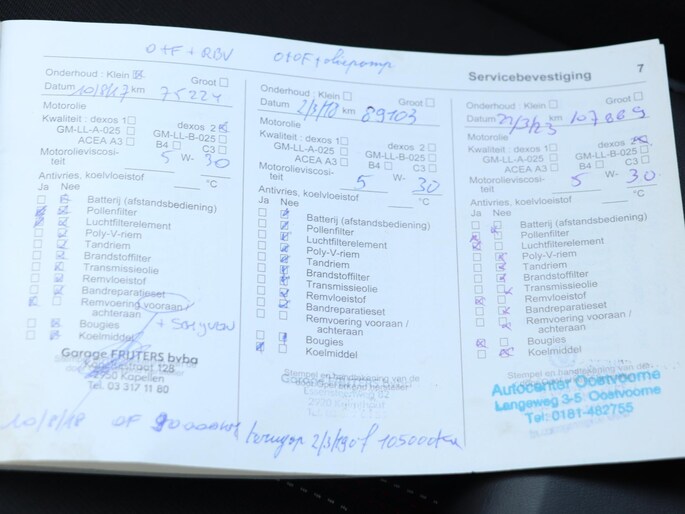 O+F + RBV
O+OF + oliepomp
Servicebevestiging 7
Onderhoud : Klein Groot
Datum 10/8/17 km 75224
Motorolie
Kwaliteit : dexos 1 dexos 2
GM-LL-A-025 GM-LL-B-025
ACEA A3 B4 C3
Motorolieviscosi-
teit 5 W- 30
Antivries, koelvloeistof °C
Ja Nee
Batterij (afstandsbediening)
Pollenfilter
Luchtfilterelement
Poly-V-riem
Tandriem
Brandstoffilter
Transmissieolie
Remvloeistof
Bandreparatieset
Remvoering vooraan /
achteraan
Bougies
Koelmiddel
Garage FRUTERS bvba
128
2950 Kapellen
Tel. 03 317 11 80
10/8/18 OF 90000km
Onderhoud : Klein Groot
Datum 2/3/18 km 89103
Motorolie
Kwaliteit : dexos 1 dexos 2
GM-LL-A-025 GM-LL-B-025
ACEA A3 B4 C3
Motorolieviscosi-
teit 5 W- 30
Antivries, koelvloeistof °C
Ja Nee
Batterij (afstandsbediening)
Pollenfilter
Luchtfilterelement
Poly-V-riem
Tandriem
Brandstoffilter
Transmissieolie
Remvloeistof
Bandreparatieset
Remvoering vooraan /
achteraan
Bougies
Koelmiddel
Stempel en handtekening van de
2/3/19 of 105000km
Onderhoud : Klein Groot
Datum 21/3/23 km 107889
Motorolie
Kwaliteit : dexos 1 dexos 2
GM-LL-A-025 GM-LL-B-025
ACEA A3 B4 C3
Motorolieviscosi-
teit 5 W- 30
Antivries, koelvloeistof °C
Ja Nee
Batterij (afstandsbediening)
Pollenfilter
Luchtfilterelement
Poly-V-riem
Tandriem
Brandstoffilter
Transmissieolie
Remvloeistof
Bandreparatieset
Remvoering vooraan /
achteraan
Bougies
Koelmiddel
Stempel en handtekening van de
Autocenter Oostvoorne
Langeweg 3-5 Oostvoorne
Tel: 0181-482755